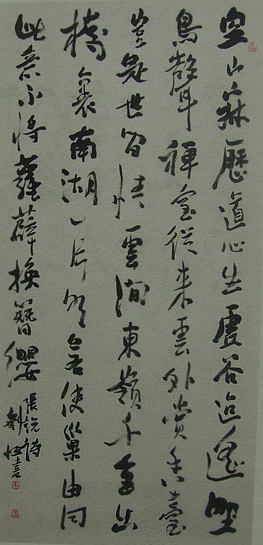 空山寂歷道心生虛谷迢遙野
鳥聲禪室從來雲外賞香臺
豈是世間情雲間東嶺千重出
樹裏南湖一片明若使巢由同
此意不將蘿薜換簪纓 張說詩
劉恒書